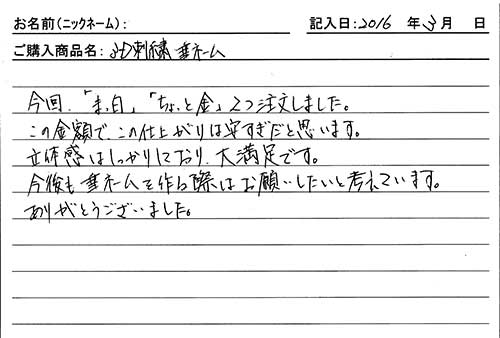 お名前(ニックネーム): 記入日:2016 年 3月 日
ご購入商品名: 3D刺繍 華ネーム
今回、「まっ白」「ちょっと金」2つ注文しました。
この金額で、この仕上がりは安すぎだと思います。
立体感はしっかりしており、大満足です。
今後も華ネームを作る際はお願いしたいと考えています。
ありがとうございました。